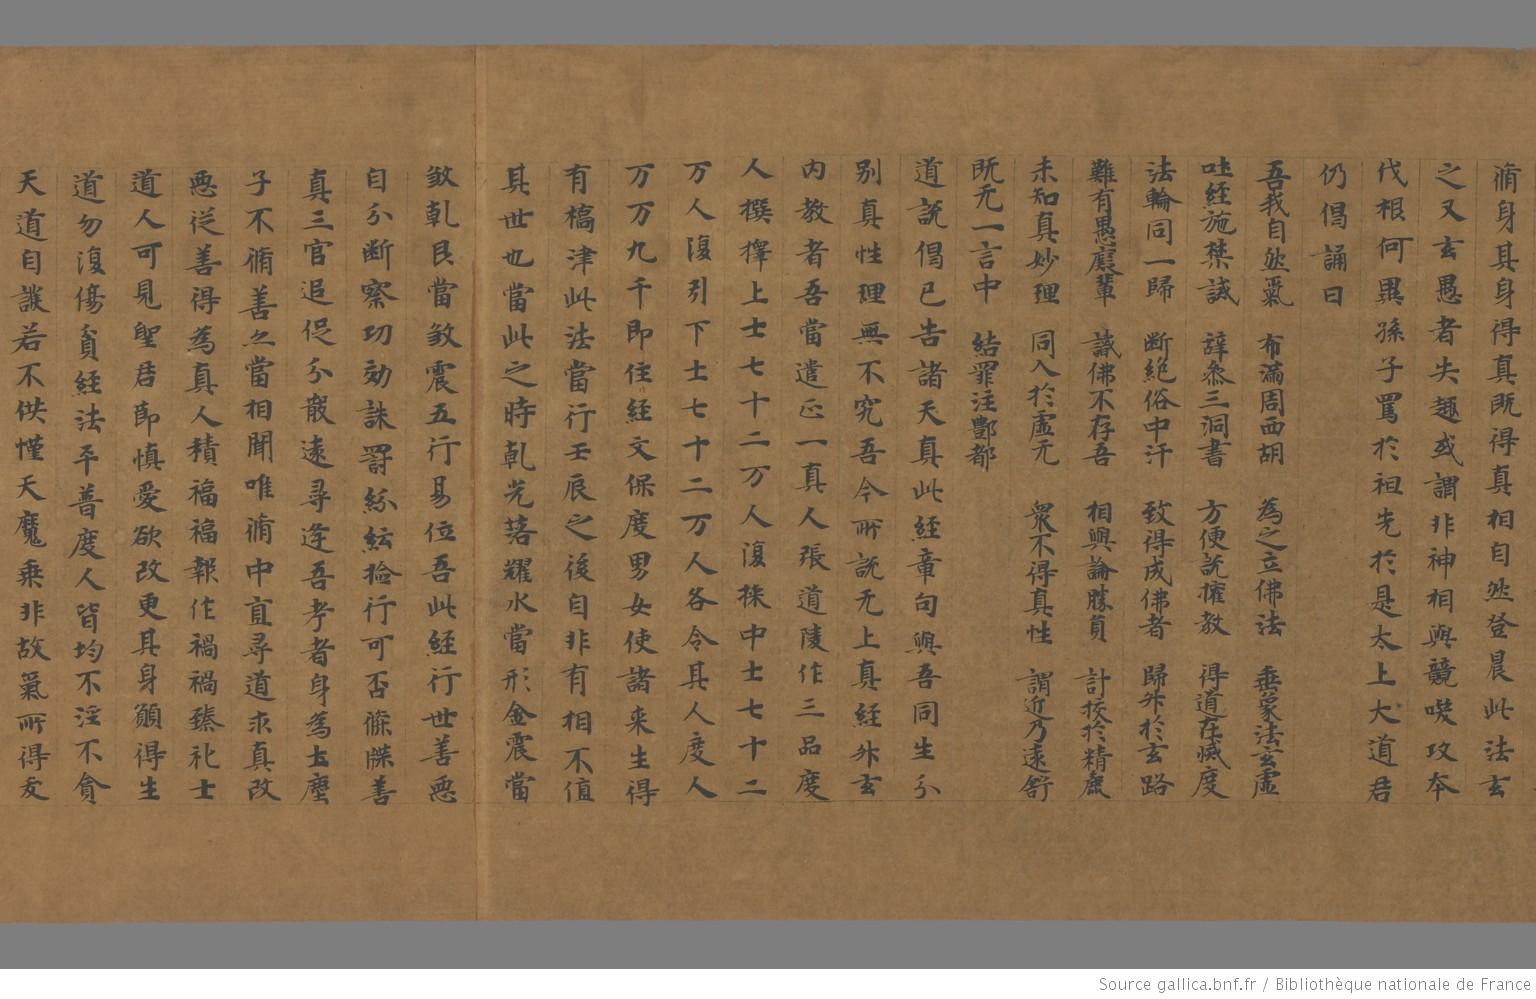 脩身其身得真既得真相自然登晨此法玄
之又玄愚者失趣或謂非神相與競嘆攻本
伐根何異孫子罵於祖先於是太上大道君
仍倡誦曰
吾我自然氣 布滿周西胡 為之立佛法 垂象法玄虛
吐經施禁誡 諱忝三洞書 方便說權教 得道在滅度
法輪同一歸 断絶俗中汗 致得成佛者 歸外於玄路
難有愚癡輩 識佛不存吾 相興論勝負 計挍於精麁
未知真妙理 同入於虛无 衆不得真性 謂近乃遠舒
既无一言中 結罪注酆都
道說倡已告諸天真此經章句與吾同生分
別真性理無不究吾今所說无上真經外玄
內教者吾當遣正一真人張道陵作三品度
人撰擇上士七十二万人復採中士七十二
万人復引下士七十二万人各令其人度人
万万九千即任經文保度男女使諸来生得
有橋津此法當行壬辰之後自非有相不值
其世也當此之時乹光落耀水當形金震當
斂乹艮當斂震五行易位吾此經行世善惡
自分断察功効誅罸紛紜捡行可否條牒善
真三官追促分散遠尋逢吾考者身為土塵
子不脩善之當相聞唯脩中直尋道求真改
惡從善得為真人積福福報作禍禍臻礼士
道人可見聖君即慎愛欲改更其身願得生
道勿復傷貪經法平普度人皆均不淫不貪
天道自護若不供慬天魔乗非故氣所得友